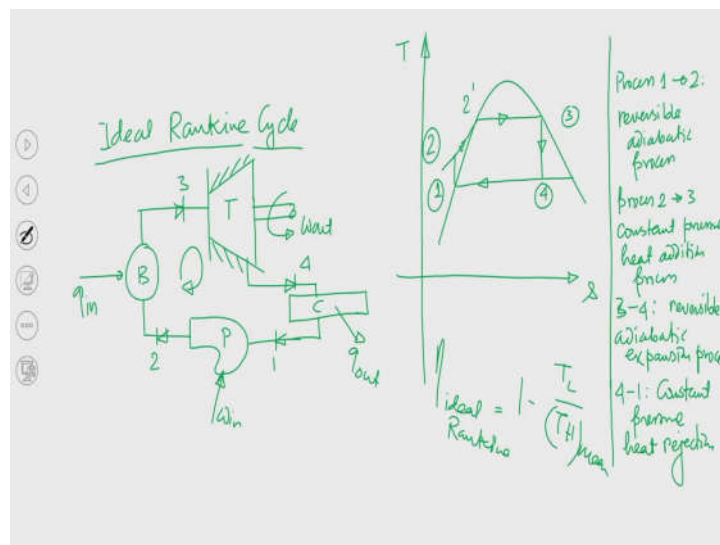 Ideal Rankine Cycle
3
T
Wout
B
qin
4
C
P
2
1
qout
Win
T
2'
3
2
1
4
s
η ideal Rankine = 1 - TL / (TH)mean
Process 1→2:
reversible
adiabatic
process
process 2→3
Constant pressure
heat addition
process
3-4: reversible
adiabatic
expansion proce
4-1: Constant
pressure
heat rejection